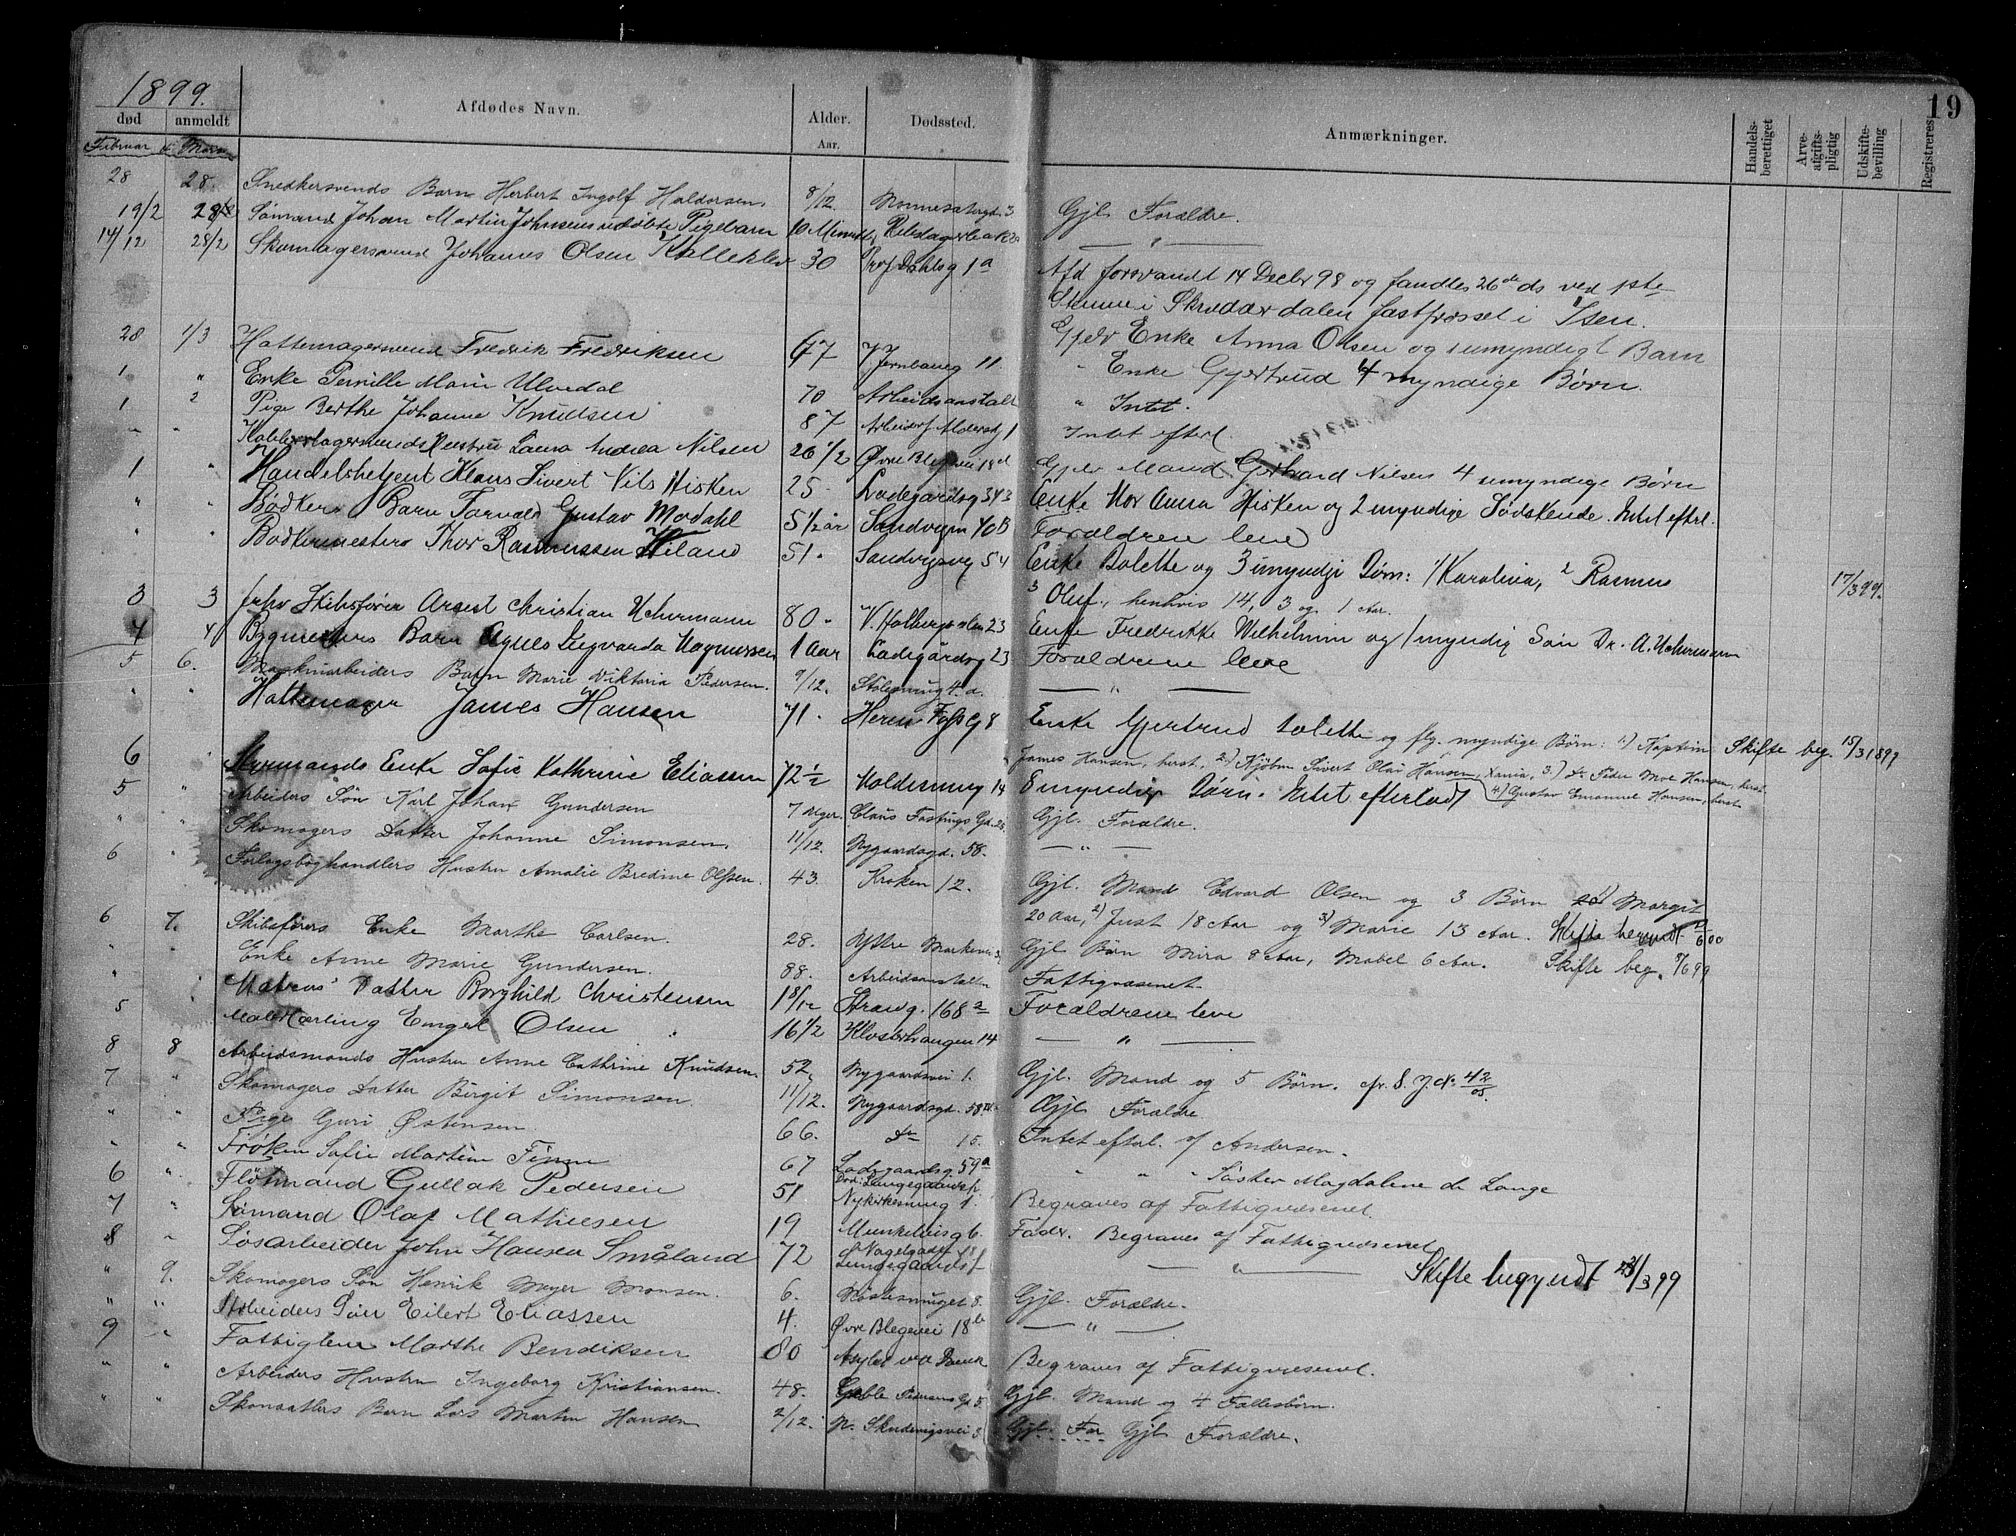 19
1899.
død anmeldt Afdødes Navn. Alder. Aar. Dødssted. Anmærkninger. Handelsberettiget Arveafgiftspligtig Udskiftebevilling Registreres
Februar & Marts
28 28. Snedkersvends Barn Herbert Ingolf Haldorsen. 8/12. Nonnesæterg. 3 Gjl. Forældre.
19/2 28/2 Sømand Johan Martin Johnsens udøbte Pigebarn 10 Minutter — " —
14/12 28/2 Skomagersvend Johannes Olsen Kalleklev 30 Prof Dahlsg 1a Afd forsvandt 14 Decbr 98 og fandtes 26de ds ved 1ste
Stemme i Skrædderdalen fastfrosset i Isen.
Gjelv Enke Anna Olsen og 1 umyndigt Barn
28 1/3 Hattemagersvend Fredrik Fredriksen 67 V Jernbaneg 11. " Enke Gjertrud 4 myndige Børn.
1 " Enke Pernille Marie Ulvedal 70 Arbeidsanstalt " Intet.
1 2 Pige Berthe Johanne Knudsen 87 Arbeiderf. Aldersh 1 Intet efterl.
" " Kobberslagersvends Hustru Laura Andrea Nilsen 26 1/2 Øvre Blegevei 18d Gjelv Mand Gerhard Nilsen 4 umyndige Børn
1 " Handelsbetjent Klaus Sivert Nils Hisken 25 Ladegårdsg 343 Enke Mor Anna Hisken og 2 myndige Sødskende. Intet efterl.
" " Bødkers Barn Torvald Gustav Modahl 5 1/2 år Sandvigen 40B Forældrene leve
" " Bødkermesters Thor Rasmussen Hiland 51. Sandvigsvg 54 Enke Bolette og 3 umyndge Børn: 1/ Karolina, 2 Rasmus 17/3 99.
3 Oluf, henhvis 14, 3 og 1 Aar.
3 3 fhv Skibsfører August Christian Uchermann 80. V. Holbergs alm 23 Enke Fredrikke Wilhelmine og 1 myndig Søn Dr. A. Uchermann
4 4 Bygmesters Barn Agnes Sigvarda Magnussen 1 Aar Ladegårdsg 23 Forældrene leve
5 6. Maskinarbeiders Barn Marie Viktoria Pedersen. 9/12. Stølesmug 4.a. — " —
" " Hattemager James Hansen 71. Herm Fossg 8 Enke Gjertrud Solette og flg. myndige Børn: 1) Kaptein Skifte beg. 15/3 1899
James Hansen, herst, 2) Kjøbm Sivert Olai Hansen, Xania, 3.) dr Peder Moe Hansen, herst
4) Gustav Emanuel Hansen, herst.
6 " Styrmands Enke Sofie Kathrine Eliassen 72 1/2 Holdesmug 14 8 myndige Børn. Intet efterladt
5 " Arbeiders Søn Karl Johan Gundersen 7 Uger. Claus Fastings Gd. 26 Gjl. Forældre.
" " Skomagers Datter Johanne Simonsen. 11/12. Nygaardsgd. 58. — " —
6 " Forlagsboghandlers Hustru Amalie Bredine Olssen. 43. Kroken 12. Gjl. Mand Edvard Olsen og 3 Børn 1) Margit
20 Aar, 2) Just 18 Aar og 3) Marie 13 Aar. Skifte begyndt 6/00
6 7. Skibsførers Enke Marthe Carlsen. 28. Ystre Markevei Gjl Børn Mira 8 Aar, Mabel 6 Aar. Skifte beg. 9/6 99
" " Enke Anne Marie Gundersen. 88. Arbeidsanstalten Fattigvæsenet.
" " Matros' Datter Borghild Christensen 1 8/12 Strandg. 168a Forældrene leve
5 Malerlærling Engel Olsen 16 1/2 Klosterhaugen 14 — " —
8 8 Arbeidsmands Hustru Anne Cathrine Knudsen. 52. Nygaardsvei 1. Gjl. Mand og 5 Børn. cfr. S. J. N. 42/05.
7 " Skomagers Datter Birgit Simonsen 11/12. Nygaardsgd. 58 Gjl. Forældre
" " Pige Guri Østensen 66. do 15. Intet efterl. Andersen.
" " Frøken Sofie Martine Finne 67 Ladegaardsg 59a " " Søster Magdalene de Lange
6 " Fløtmand Gullak Pedersen 51. Nykirkesmug 1. Begraves af Fattigvæsenet.
7 " Sømand Olaf Mathiesen 19 Munkebrisg 6. Fader. Begraves af Fattigvæsenet
8 " Løsarbeider John Hansen Småland 72 Nagelgaden 18 — " — Skifte begyndt 23/3 99
" 9. Skomagers Søn Henrik Meyer Monsen. 6. Nøstesmuget 8. Gjl. Forældre.
" " Arbeiders Søn Eilert Eliassen 4. Øvre Blegevei 18b — " —
9 " Fattiglem Marthe Bendiksen 80 Asylet Begraves af Fattigvæsenet.
" " Arbeiders Hustru Ingeborg Kristiansen. 48. Gable Pedersens Gd 5 Gjl. Mand og 4 Fællesbørn.
" " Skomagers Barn Lars Martin Hansen 2/12. N. Skudevigsvei 3 Gjl. For Gjl Forældre.